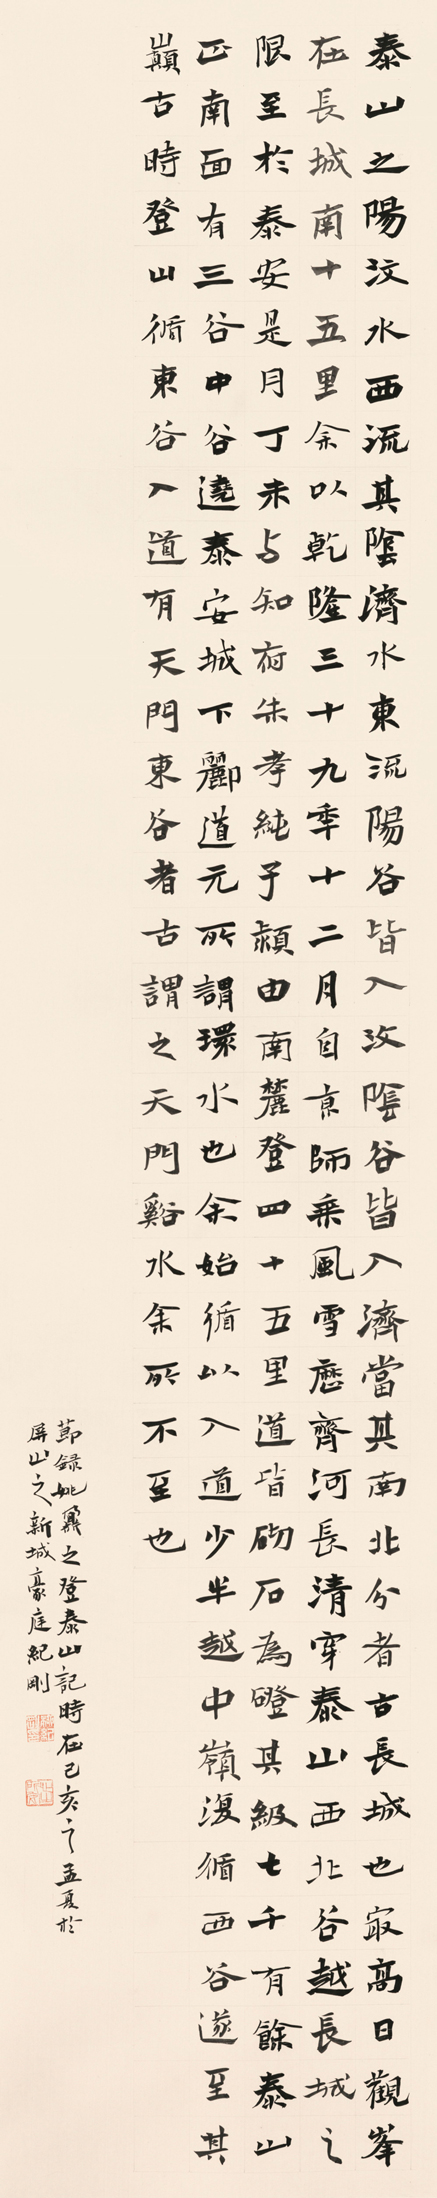 泰山之陽汶水西流其陰濟水東流陽谷皆入汶陰谷皆入濟當其南北分者古長城也冣高日觀峯
在長城南十五里余以乾隆三十九季十二月自京師乘風雪歷齊河長清穿泰山西北谷越長城之
限至於泰安是月丁未与知府朱孝純子潁由南麓登四十五里道皆砌石為磴其級七千有餘泰山
正南面有三谷中谷遶泰安城下酈道元所謂環水也余始循以入道少半越中嶺復循西谷遂至其
巔古時登山循東谷入道有天門東谷者古謂之天門谿水余所不至也
節録姚鼐之登泰山記時在己亥之孟夏於
屏山之新城豪庭紀剛